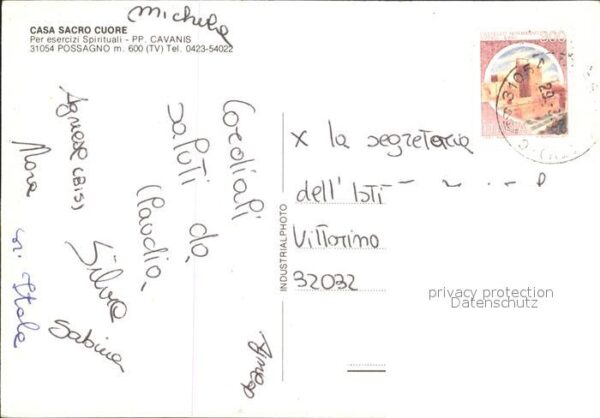 michela
CASA SACRO CUORE
Per esercizi Spirituali - PP. CAVANIS
31054 POSSAGNO m. 600 (TV) Tel. 0423-54022
Cordiali
saluti da
Claudia,
Agnese (BIS)
Mara
Silvia
Sabina
INDUSTRIALPHOTO
x la segreteria
dell' Isti
Vittorino
32032
privacy protection
Datenschutz